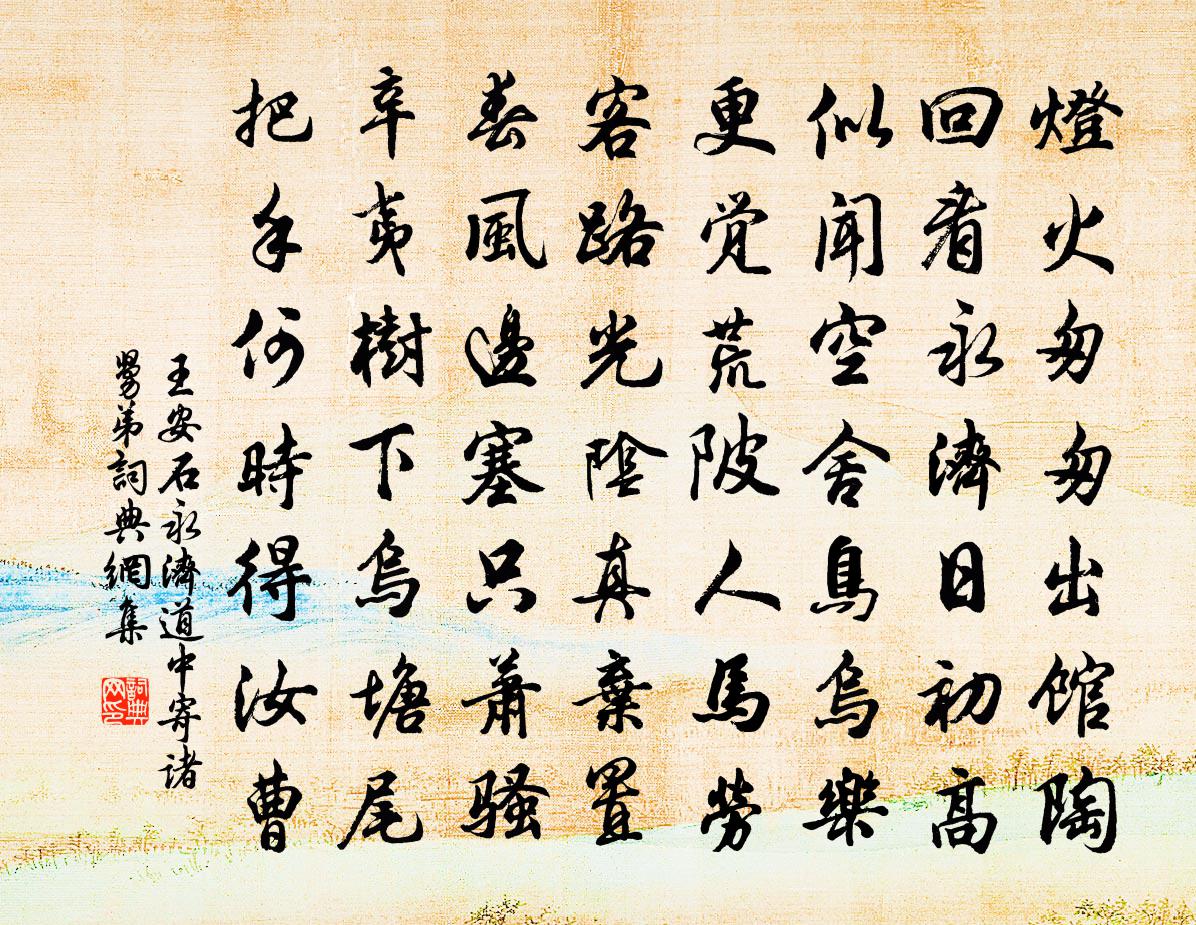 燈火匆匆出館陶
回看永濟日初高
似聞空舍鳥烏樂
更覚荒陂人馬勞
客路光陰真棄置
春風邊塞只蕭騷
辛夷樹下烏塘尾
把手何時得汝曹
王安石永濟道中寄諸
舅弟詞典網集
詞典网印